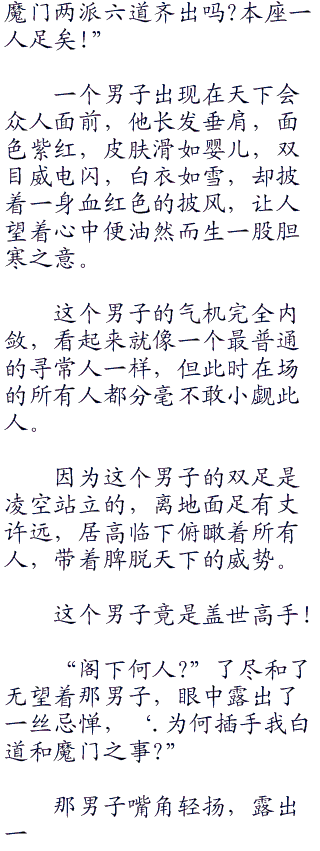 魔门两派六道齐出吗?本座一
人足矣!”
一个男子出现在天下会
众人面前，他长发垂肩，面
色紫红，皮肤滑如婴儿，双
目威电闪，白衣如雪，却披
着一身血红色的披风，让人
望着心中便油然而生一股胆
寒之意。
这个男子的气机完全内
敛，看起来就像一个最普通
的寻常人一样，但此时在场
的所有人都分毫不敢小觑此
人。
因为这个男子的双足是
凌空站立的，离地面足有丈
许远，居高临下俯瞰着所有
人，带着脾脱天下的威势。
这个男子竟是盖世高手!
“阁下何人?”了尽和了
无望着那男子，眼中露出了
一丝忌惮，‘.为何插手我白
道和魔门之事?”
那男子嘴角轻扬，露出
一